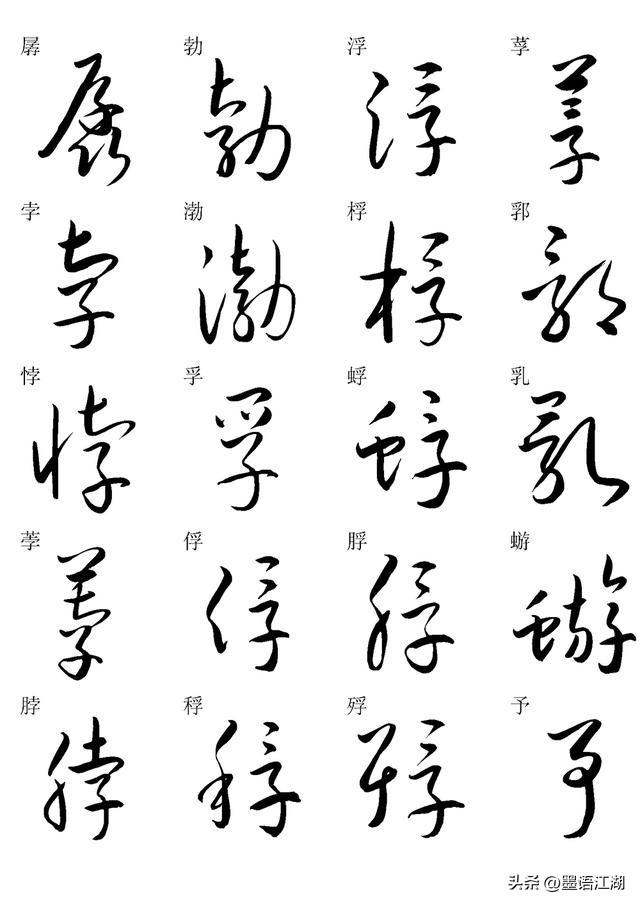 孱 勃 浮 莩
孛 渤 桴 郛
悖 孚 蜉 乳
荸 俘 脬 蝣
脖 稃 殍 予
头条 @墨语江湖